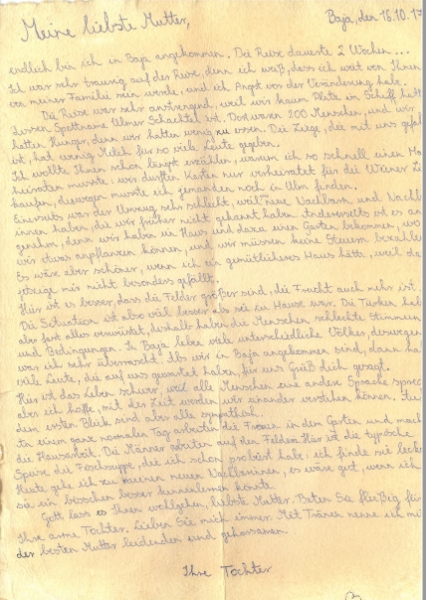 Meine liebste Mutter,
Baja, den 16.10.17
endlich bin ich in Baja angekommen. Die Reise dauerte 2 Wochen...
Ich war sehr traurig auf der Reise, denn ich weiß, dass ich weit von Ihnen
von meiner Familie sein werde, und ich Angst vor der Veränderung habe.
Die Reise war sehr anstrengend, weil wir kaum Platz im Schiff hatt
dessen Spottname Ulmer Schachtel ist. Dort waren 200 Menschen, und wir
hatten Hunger, denn wir hatten wenig zu essen. Die Ziege, die mit uns gefah
ist, hat wenig Milch für so viele Leute gegeben.
Ich wollte Ihnen schon längst erzählen, warum ich so schnell einen Ma
heiraten musste: wir durften Karten nur verheiratet für die Wiener Zi
kaufen, deswegen musste ich jemanden noch in Ulm finden.
Einerseits war der Umzug sehr schlecht, weil neue Nachbarn und Nachba
innen haben, die wir früher nicht gekannt haben. Andererseits ist es an
genehm, denn wir haben ein Haus und dazu einen Garten bekommen, wo
wir etwas anpflanzen können, und wir müssen keine Steuern bezahlen
Es wäre aber schöner, wenn ich ein gemütlicheres Haus hätte, weil das
jetzige mir nicht besonders gefällt.
Hier ist es besser, dass die Felder größer sind, die Frucht auch mehr ist.
Die Situation ist also viel besser als sie zu Hause war. Die Türken hab
aber fast alles verwüstet, deshalb haben die Menschen schlechte Stimmun
und Bedingungen. In Baja leben viele unterschiedliche Völker, deswegen
war ich sehr überrascht. Als wir in Baja angekommen sind, dann hab
viele Leute, die auf uns gewartet haben, für uns Grüß dich gesagt.
Hier ist das Leben schwer, weil alle Menschen eine andere Sprache sprec
aber ich hoffe, mit der Zeit werden wir einander verstehen können.
dem ersten Blick sind aber alle sympathisch.
An einem ganz normalen Tag arbeiten die Frauen in dem Garten und mach
die Hausarbeit. Die Männer arbeiten auf den Feldern. Hier ist die typische
Speise die Fischsuppe, die ich schon probiert habe: ich finde sie lecke
Heute gehe ich zu meinen neuen Nachbarinnen, es wäre gut, wenn ich
sie ein bisschen besser kennenlernen könnte.
Gott lass es Ihnen wohlgehen, liebste Mutter. Beten Sie fleißig für
Ihre arme Tochter. Lieben Sie mich immer. Mit Tränen nenne ich mi
der besten Mutter leidenden und gehorsamen
Ihre Tochter